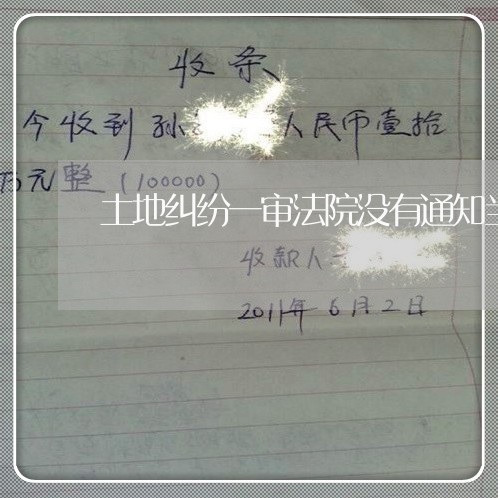 收条
今收到孙人民币壹拾
万元整(100000)
土地纠纷一审法院没有通知
收款人
2011年6月2日